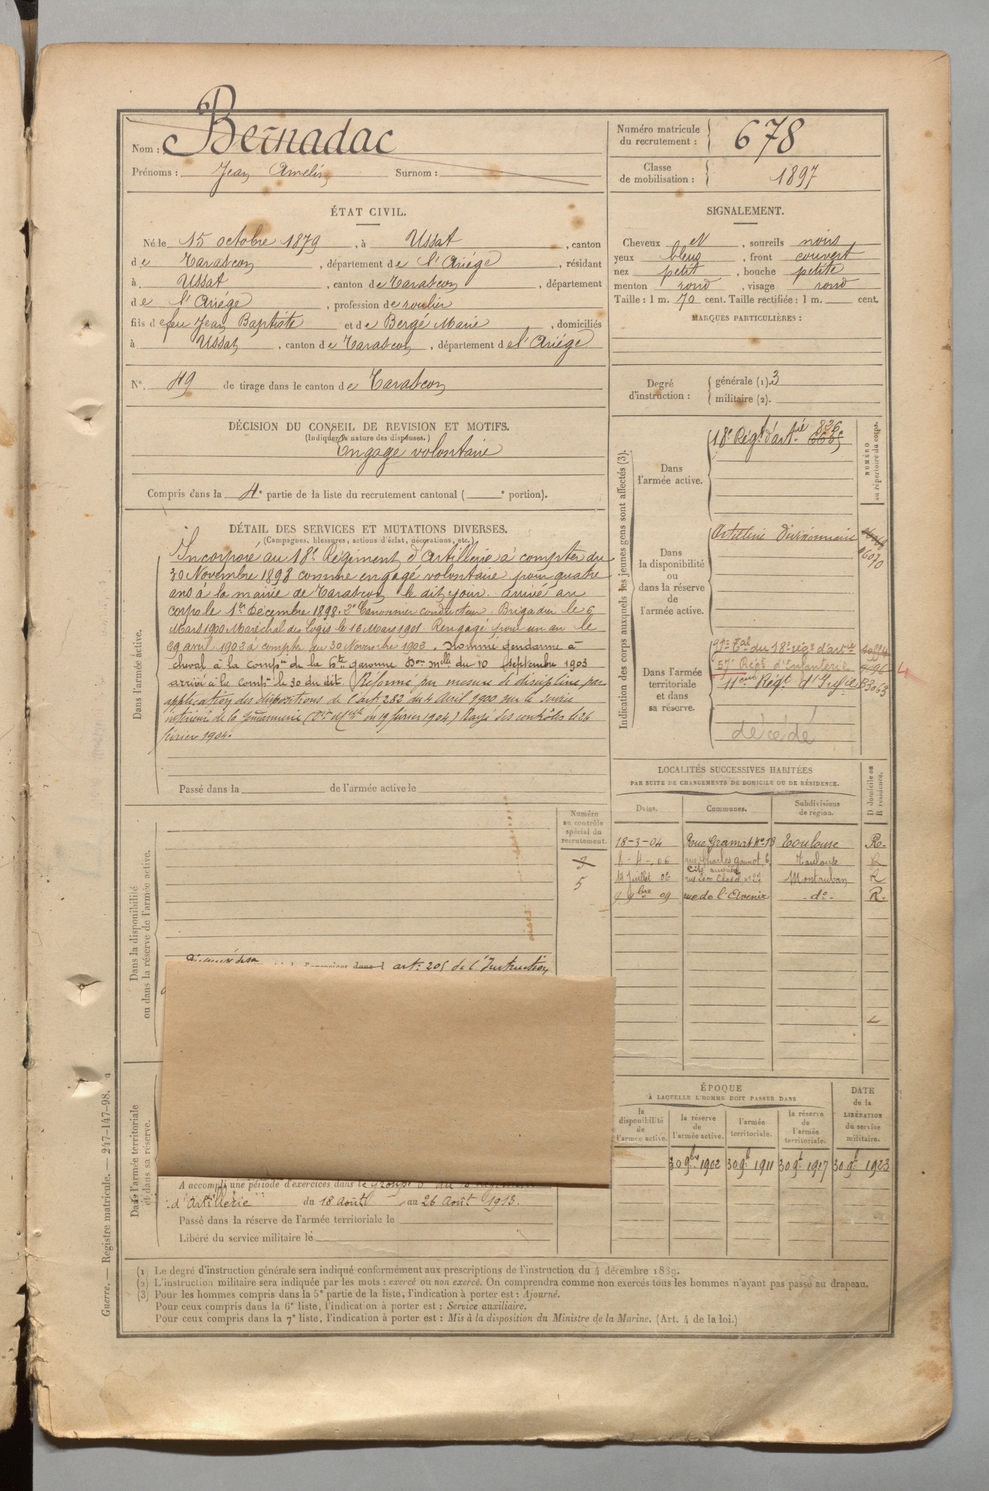 Nom : Bernadac
Prénoms : Jean Amelin Surnom :
Numéro matricule du recrutement : 678
Classe de mobilisation : 1897
ÉTAT CIVIL.
Né le 15 octobre 1879, à Ussat, canton
de Tarascon, département de l'Ariége, résidant
à Ussat, canton de Tarascon, département
de l'Ariége, profession de roulier
fils de feu Jean Baptiste et de Bergé Marie, domiciliés
à Ussat, canton de Tarascon, département de l'Ariége
N° 49 de tirage dans le canton de Tarascon
SIGNALEMENT.
Cheveux et, sourcils noirs
yeux bleus, front couvert
nez petit, bouche petite
menton rond, visage rond
Taille : 1 m. 70 cent. Taille rectifiée : 1 m. cent.
MARQUES PARTICULIÈRES :
Degré d'instruction : générale (1). 3
militaire (2).
DÉCISION DU CONSEIL DE REVISION ET MOTIFS.
(Indiquer la nature des dispenses.)
Engagé volontaire
Compris dans la 4e partie de la liste du recrutement cantonal ( e portion).
DÉTAIL DES SERVICES ET MUTATIONS DIVERSES.
(Campagnes, blessures, actions d'éclat, décorations, etc.)
Dans l'armée active.
Incorporé au 18e Régiment d'Artillerie à compter du
30 Novembre 1898 comme engagé volontaire pour quatre
ans à la mairie de Tarascon le dit jour. Arrivé au
corps le 1er décembre 1898. 2e Canonnier conducteur. Brigadier le 6
Mars 1900 Maréchal des Logis le 16 Mars 1901. Rengagé pour un an le
29 avril 1903 à compter du 30 Novembre 1903. Nommé gendarme à
cheval à la Compnie de la Hte Garonne Don Mlle du 10 septembre 1903
arrivé à la Compnie le 30 du dit. Réformé par mesure de discipline par
application des dispositions de l'art 252 du 4 Avril 1900 sur le service
intérieur de la Gendarmerie du 19 février 1904) Rayé des contrôles le 24
février 1904.
Passé dans la de l'armée active le
Indication des corps auxquels les jeunes gens sont affectés (3).
NUMÉRO au répertoire du corps.
Dans l'armée active.
18e Régt d'artie 826
Dans la disponibilité ou dans la réserve de l'armée active.
Artillerie Divisionnaire
Dans l'armée territoriale et dans sa réserve.
du 18e rég. d'artie
57e Régt d'Infanterie
11ème Régt d'
décédé
LOCALITÉS SUCCESSIVES HABITÉES
PAR SUITE DE CHANGEMENTS DE DOMICILE OU DE RÉSIDENCE.
Dates. Communes. Subdivisions de région. D domicile ou R résidence.
18-3-04 Rue Gramat N° 19 Toulouse R.
06 Toulouse R
Juillet 06 Montauban R
9 9bre 09 rue de l'Avenir do R.
Dans la disponibilité ou dans la réserve de l'armée active.
Numéro au contrôle spécial du recrutement.
3
5
art. 205 de l'Instruction
Dans l'armée territoriale et dans sa réserve.
A accompli une période d'exercices dans le
d'Artillerie du 18 août au 26 Août 1913.
Passé dans la réserve de l'armée territoriale le
Libéré du service militaire le
ÉPOQUE
À LAQUELLE L'HOMME DOIT PASSER DANS
la disponibilité de l'armée active. la réserve de l'armée active. l'armée territoriale. la réserve de l'armée territoriale. DATE de la LIBÉRATION du service militaire.
30 9bre 1902 30 9b 1911 30 9b 1917 30 9b 1923
(1) Le degré d'instruction générale sera indiqué conformément aux prescriptions de l'instruction du 4 décembre 1889.
(2) L'instruction militaire sera indiquée par les mots : exercé ou non exercé. On comprendra comme non exercés tous les hommes n'ayant pas passé au drapeau.
(3) Pour les hommes compris dans la 5e partie de la liste, l'indication à porter est : Ajourné.
Pour ceux compris dans la 6e liste, l'indication à porter est : Service auxiliaire.
Pour ceux compris dans la 7e liste, l'indication à porter est : Mis à la disposition du Ministre de la Marine. (Art. 4 de la loi.)
Guerre. — Registre matricule. — 247-147-98.